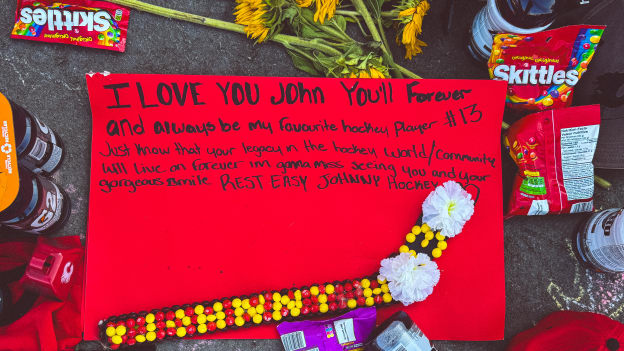 Skittles
ORIGINAL
Skittles
I LOVE YOU John You'll Forever
and always be my favourite hockey Player #13
Just know that your legacy in the hockey world/community
Will live on forever im gonna miss seeing you and your
gorgeous smile REST EASY JOHNNY HOCKEY